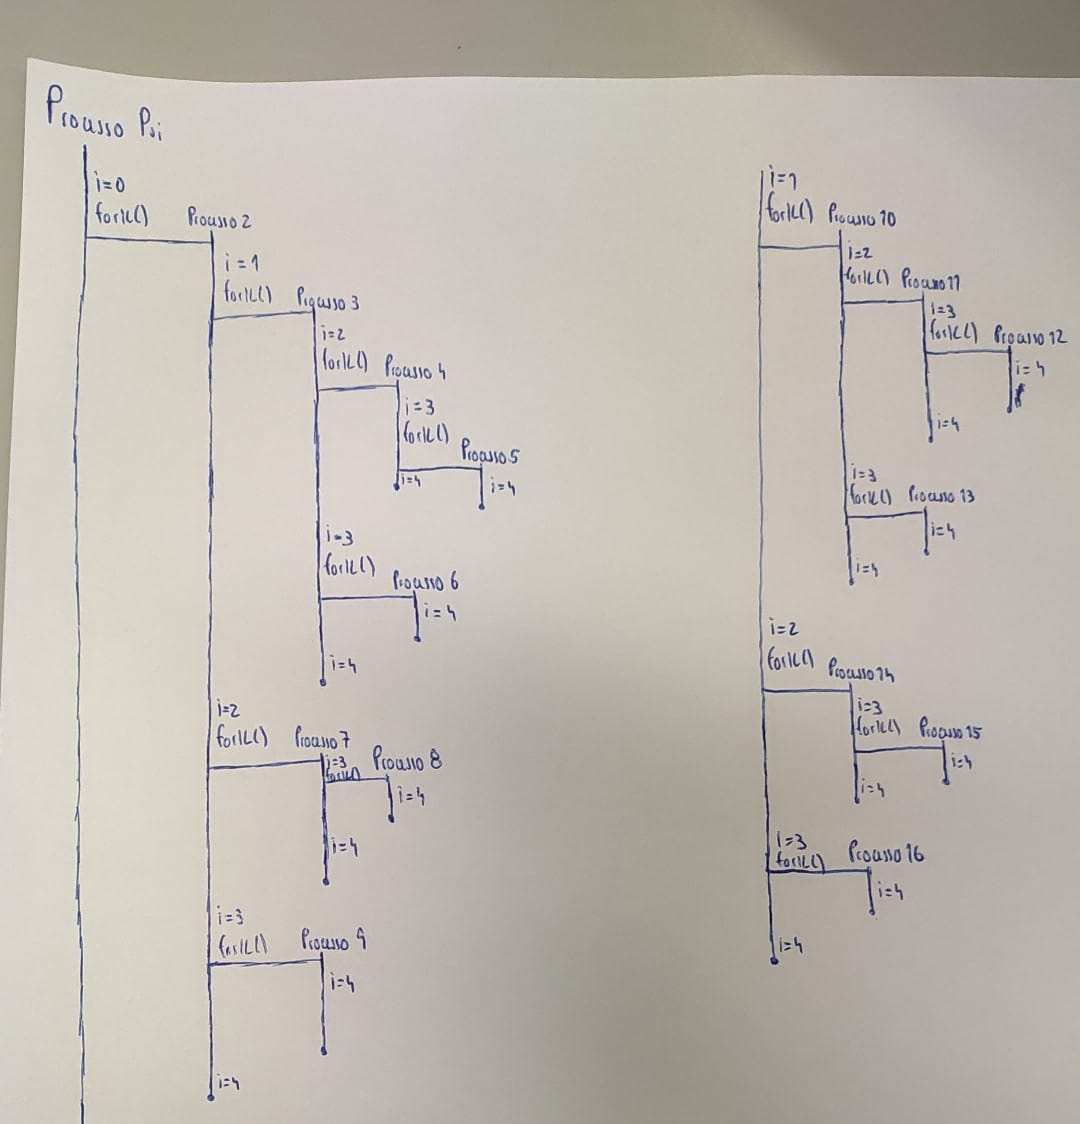 Processo Pai
i=0
fork() Processo 2
i=1
fork() Processo 3
i=2
fork() Processo 4
i=3
fork() Processo 5
i=4 i=4
i=3
fork() Processo 6
i=4
i=4
i=2
fork() Processo 7
i=3 Processo 8
fork()
i=4
i=4
i=3
fork() Processo 9
i=4
i=4
i=1
fork() Processo 10
i=2
fork() Processo 11
i=3
fork() Processo 12
i=4
i=4
i=3
fork() Processo 13
i=4
i=4
i=2
fork() Processo 14
i=3
fork() Processo 15
i=4
i=4
i=3
fork() Processo 16
i=4
i=4